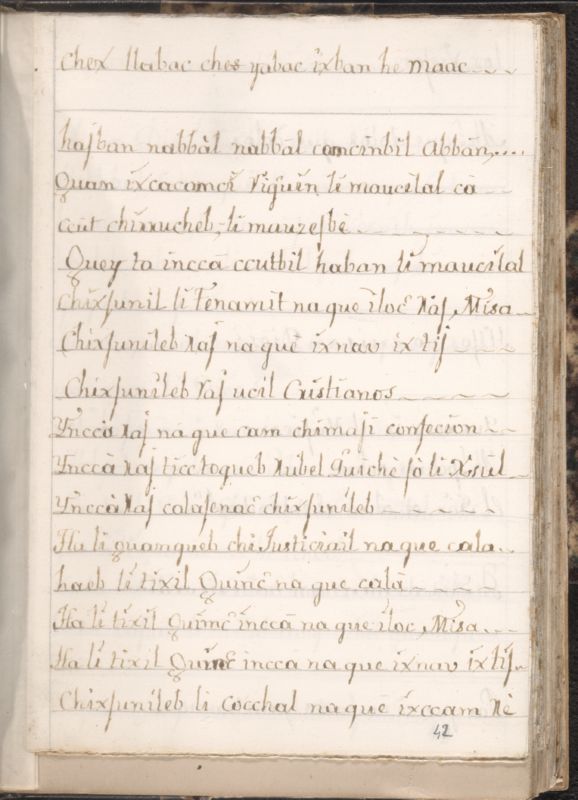 Chex llabac ches yabac ixban he maac
hasban nabbâl nabbâl camcinbil abbân,....
Quan ixcacamcî riguên li maucilal cà
ccût chiruucheb, li mauzesbê
Quey ta inccâ ccutbil haban li maucilal
Chixsunil li tenamit na que iloc Naj, Misa
Chixsunileb Naj na que ixnav ix tij
Chixsunileb Naj ucil Cristianos
Ynccà Naj na que cam chimasi confecion
Ynccà Naj ticctoqueb Rubel Guichê sô li Xsul
Ynccà Naj colasenac chixsunileb
Ha li quanqueb chi Justiciail na que cala
haeb li tixil Quinc na que calà
Ha li tixil Quinc inccà na que iloc, Misa
Ha li tixil Quinc inccà na que ixnav ix tij
Chixsunileb li cocchal na que ixccam Nê
42